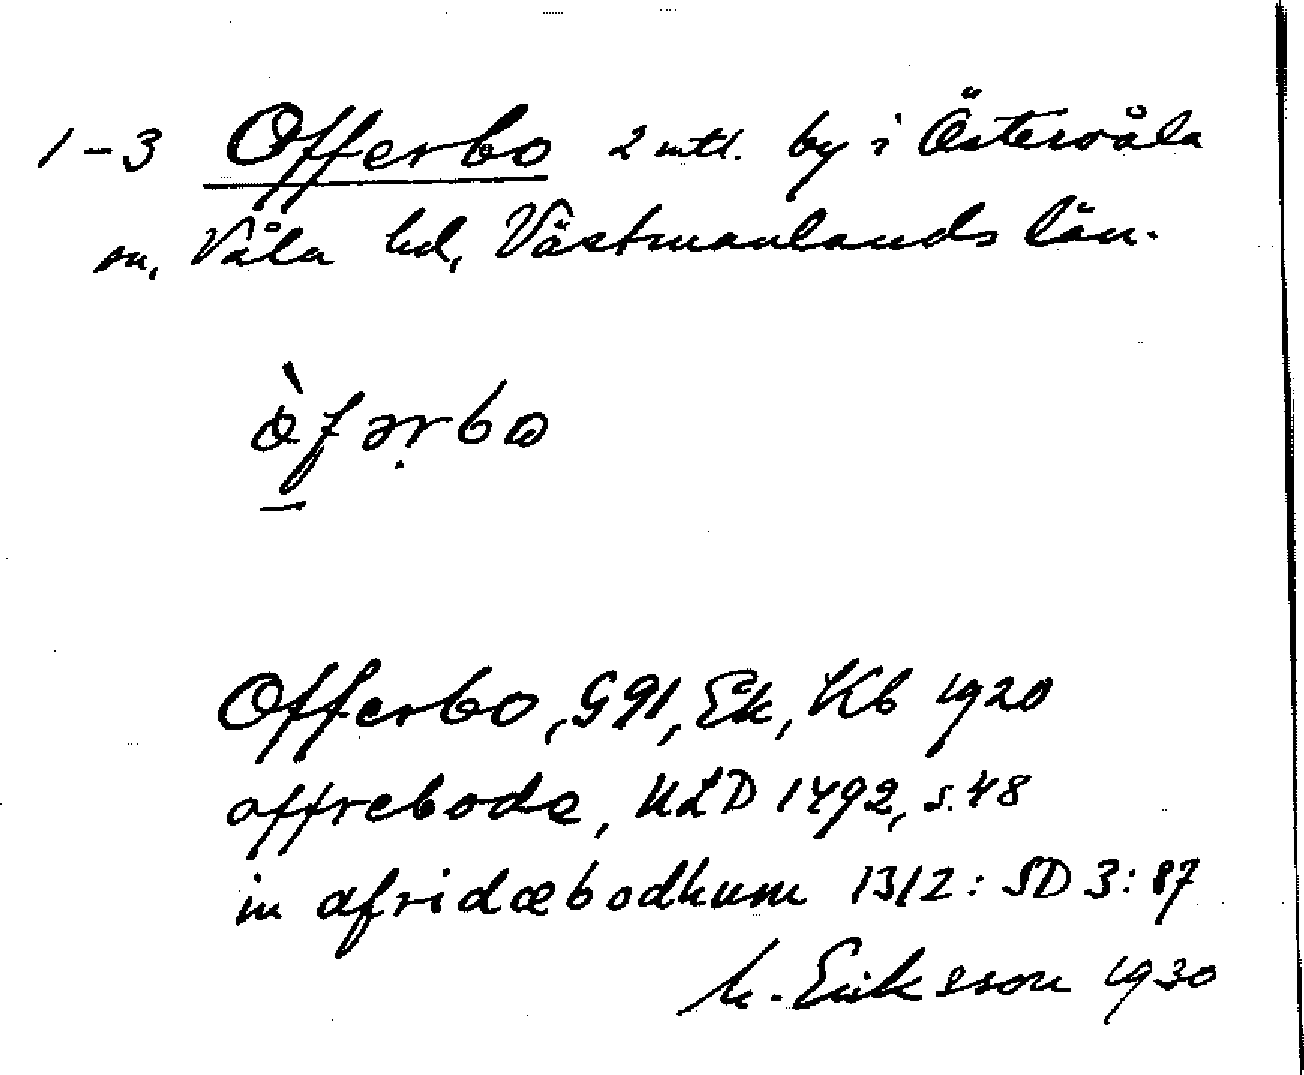 1-3 Offerbo 2 mtl. by i Östervåla
sn, Våla hd, Västmanlands län.
òfərbo
Offerbo, G91, Ek, Kb 1920
offrebode, ULD 1492, s. 48
in afridæbodhum 1312: SD 3: 87
M. Eriksson 1930